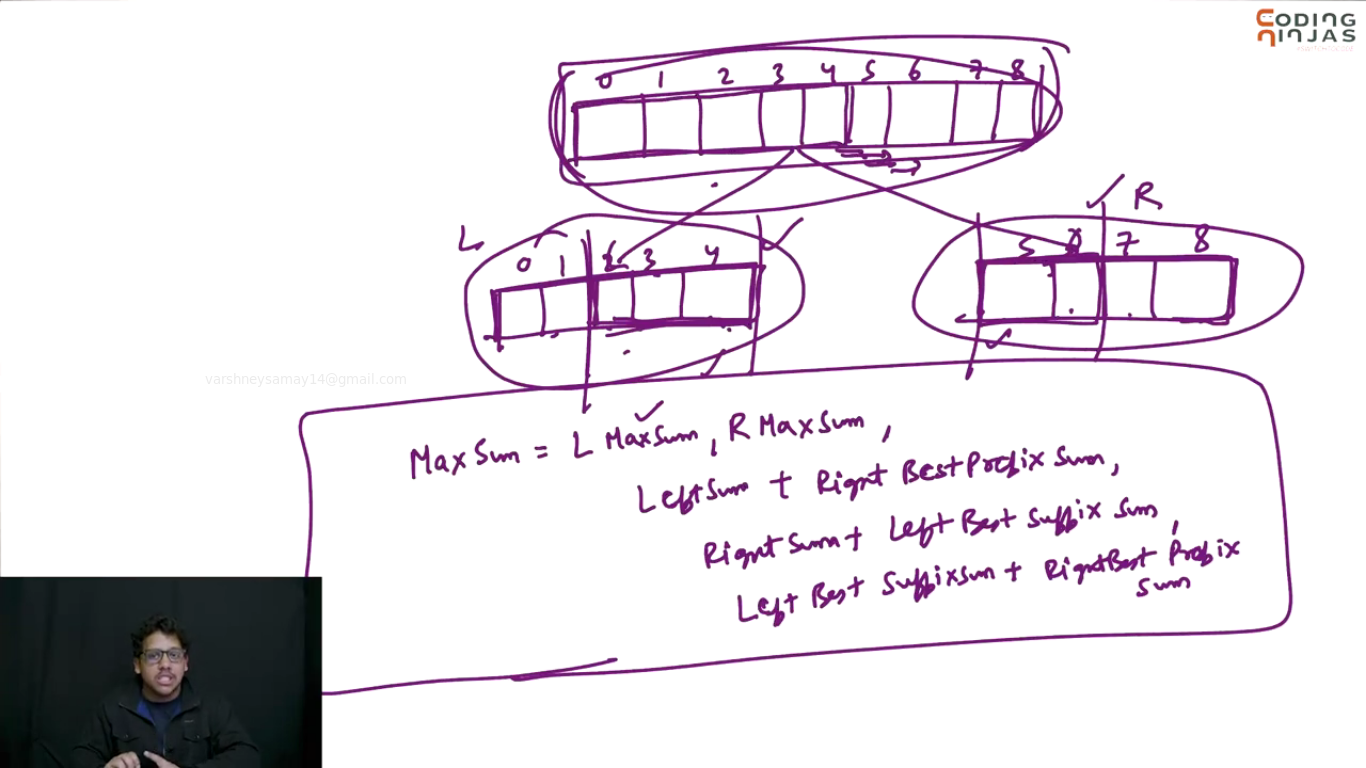 CODING
NINJAS
0 1 2 3 4 5 6 7 8
R
L
0 1 2 3 4
5 6 7 8
varshneysamay14@gmail.com
MaxSum = L MaxSum, R MaxSum,
LeftSum + Right Best Prefix Sum,
Right Sum + Left Best Suffix Sum,
Left Best Suffix Sum + Right Best Prefix
Sum